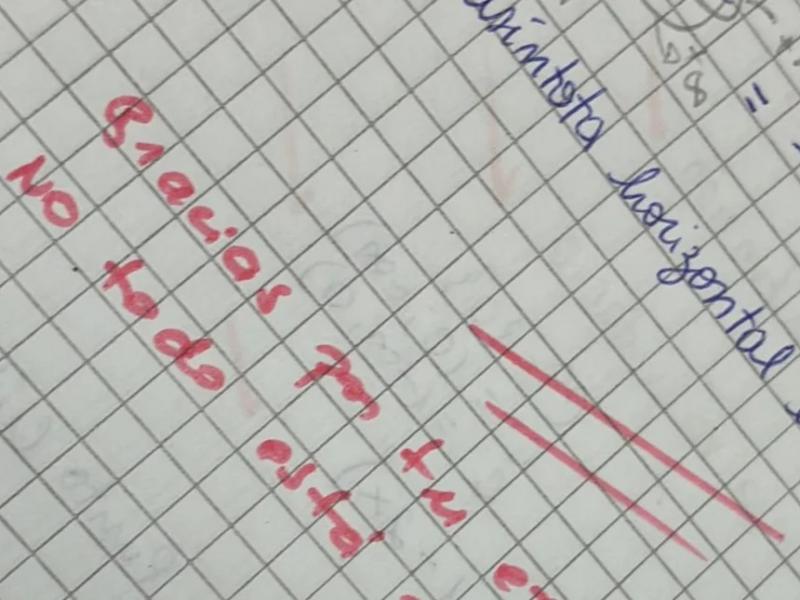 asíntota horizontal
Gracias por tu
NO todo está